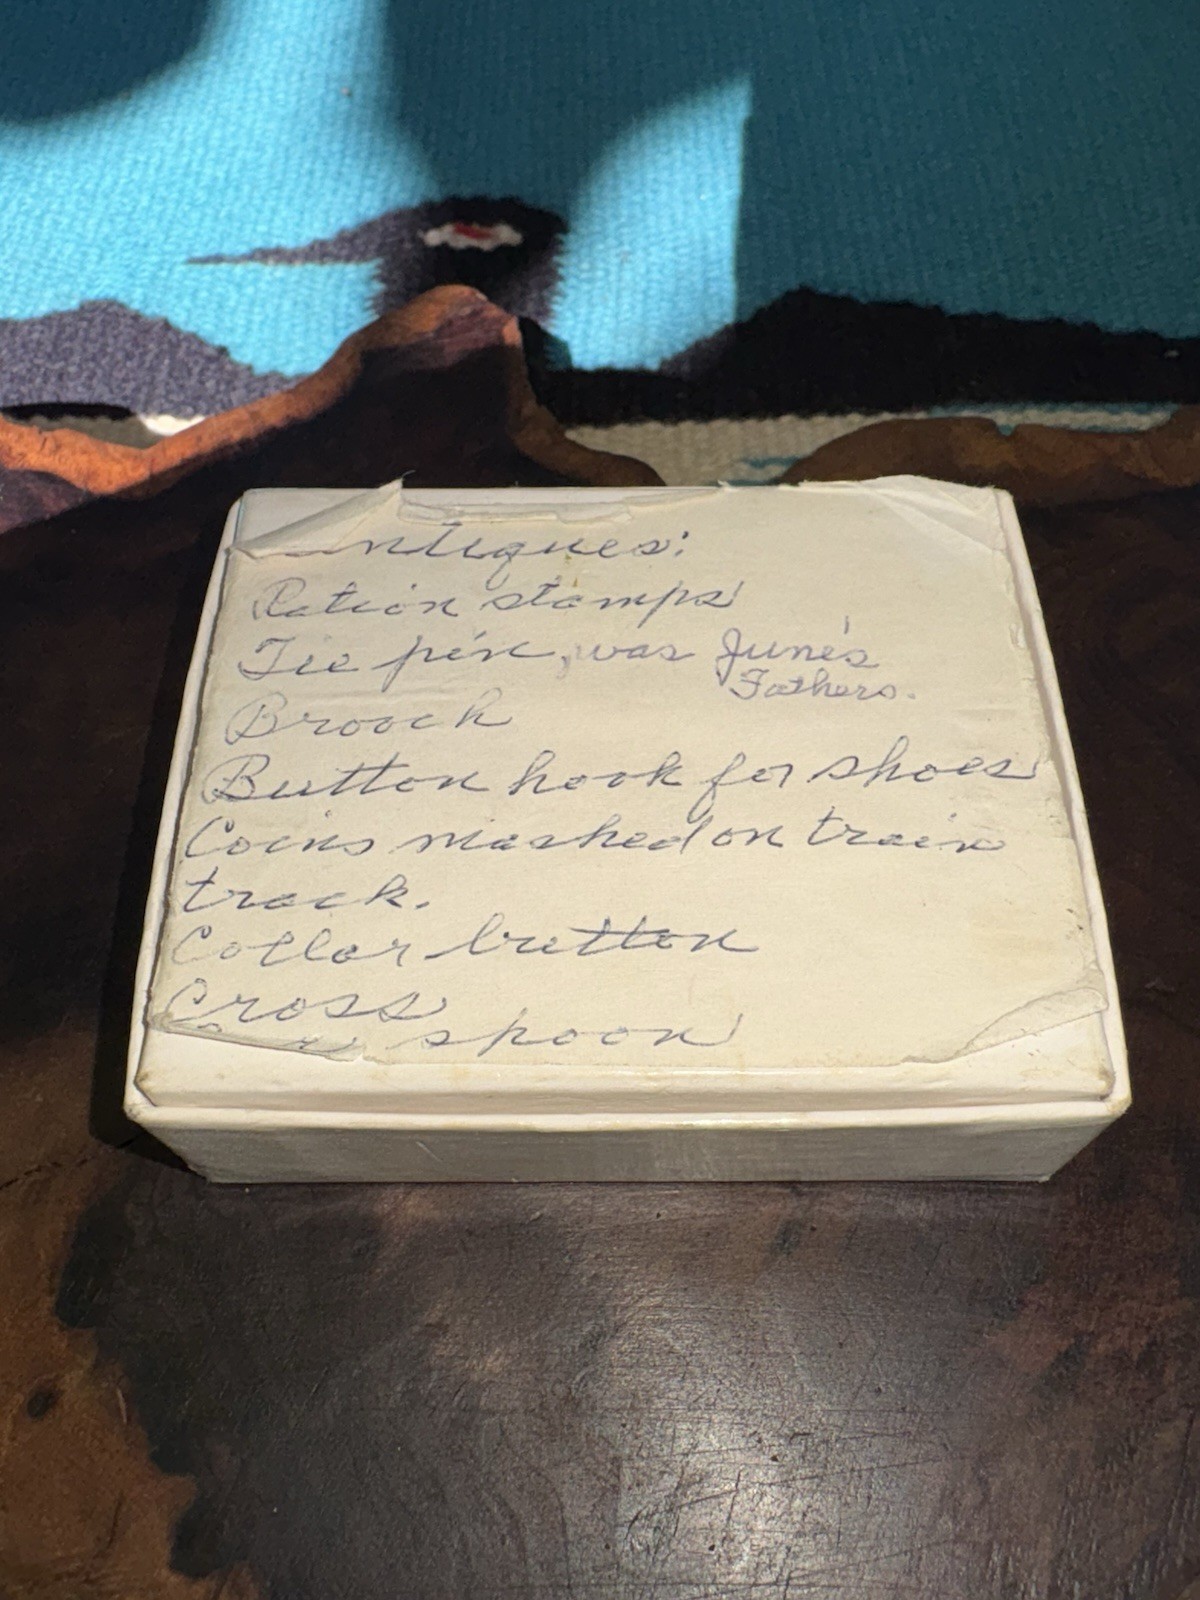 Antiques:
Ration stamps
Tie pin, was June's
Fathers.
Brooch
Button hook for shoes
Coins mashed on train
track.
Collar button
Cross
spoon